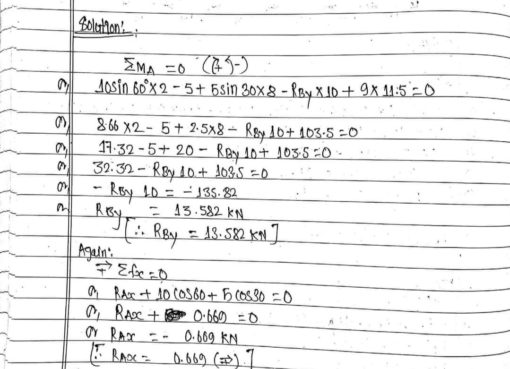 Solution:
ΣMA = 0 (↻+-)
or, 10sin 60° × 2 - 5 + 5sin 30 × 8 - RBy × 10 + 9 × 11.5 = 0
or, 8.66 × 2 - 5 + 2.5×8 - RBy 10 + 103.5 = 0
or, 17.32 - 5 + 20 - RBy 10 + 103.5 = 0
or, 32.32 - RBy 10 + 103.5 = 0
or, - RBy 10 = - 135.82
or RBy = 13.582 KN
[∴ RBy = 13.582 KN]
Again:
Σfx = 0
or, RAx + 10 cos60 + 5 cos30 = 0
or, RAx + 0.669 = 0
or RAx = - 0.669 KN
[∴ RAx = 0.669 ]